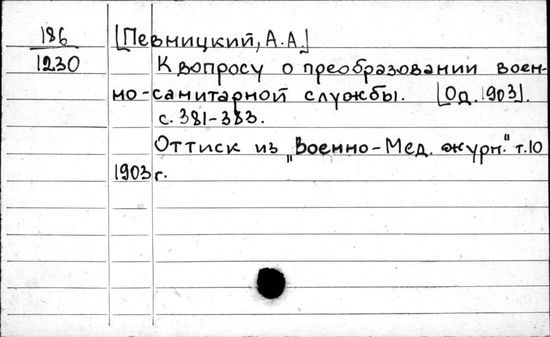 186
1230
[Певницкий, А.А.]
К вопросу о преобразовании воен-
но-санитарной службы. [Од. 1903].
с. 381-383.
Оттиск из "Военно-Мед. журн." т.10
1903 г.